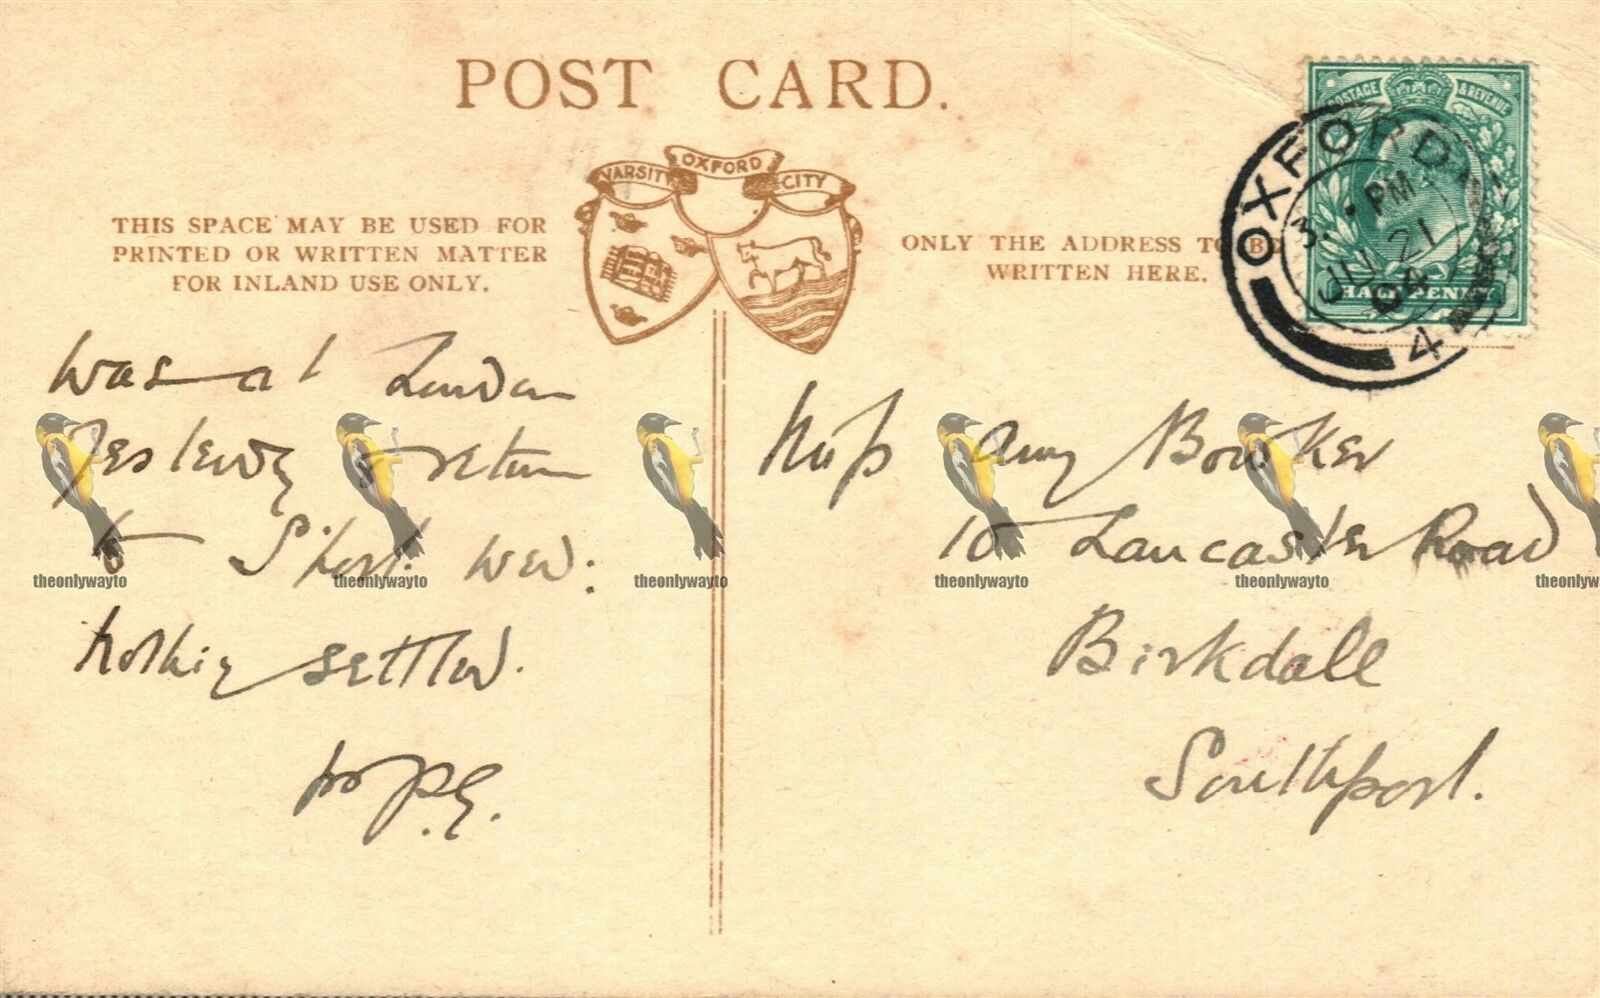 POST CARD.
VARSITY OXFORD CITY
THIS SPACE MAY BE USED FOR
PRINTED OR WRITTEN MATTER
FOR INLAND USE ONLY.
ONLY THE ADDRESS TO BE
WRITTEN HERE.
POSTAGE & REVENUE
HALFPENNY
OXFORD
PM
JU 21
04
4
Was at London
Yesterday return
to S'port. Wed:
Nothing settled.
Miss Amy Bowker
10 Lancaster Road
Birkdale
Southport.
theonlywayto theonlywayto theonlywayto theonlywayto theonlywayto theonlyw